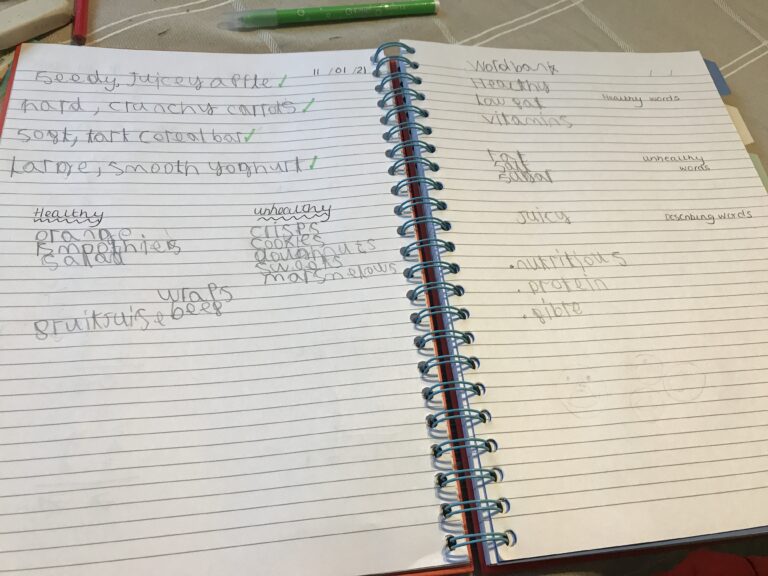 seedy, juicey apple ✓ 11/01/21
hard, crunchy carrots ✓
soft, tart cereal bar ✓
Large, smooth yoghurt ✓
Healthy
orange
smoothies
salad
unhealthy
crisps
cookies
doughnuts
sweets
marsmelows
wraps
beef
fruitjuise
Word bank / /
Healthy
Low fat Healthy words
vitamins
Fat unhealthy
salt words
sugar
juicy Describing words
.nutritious
.protein